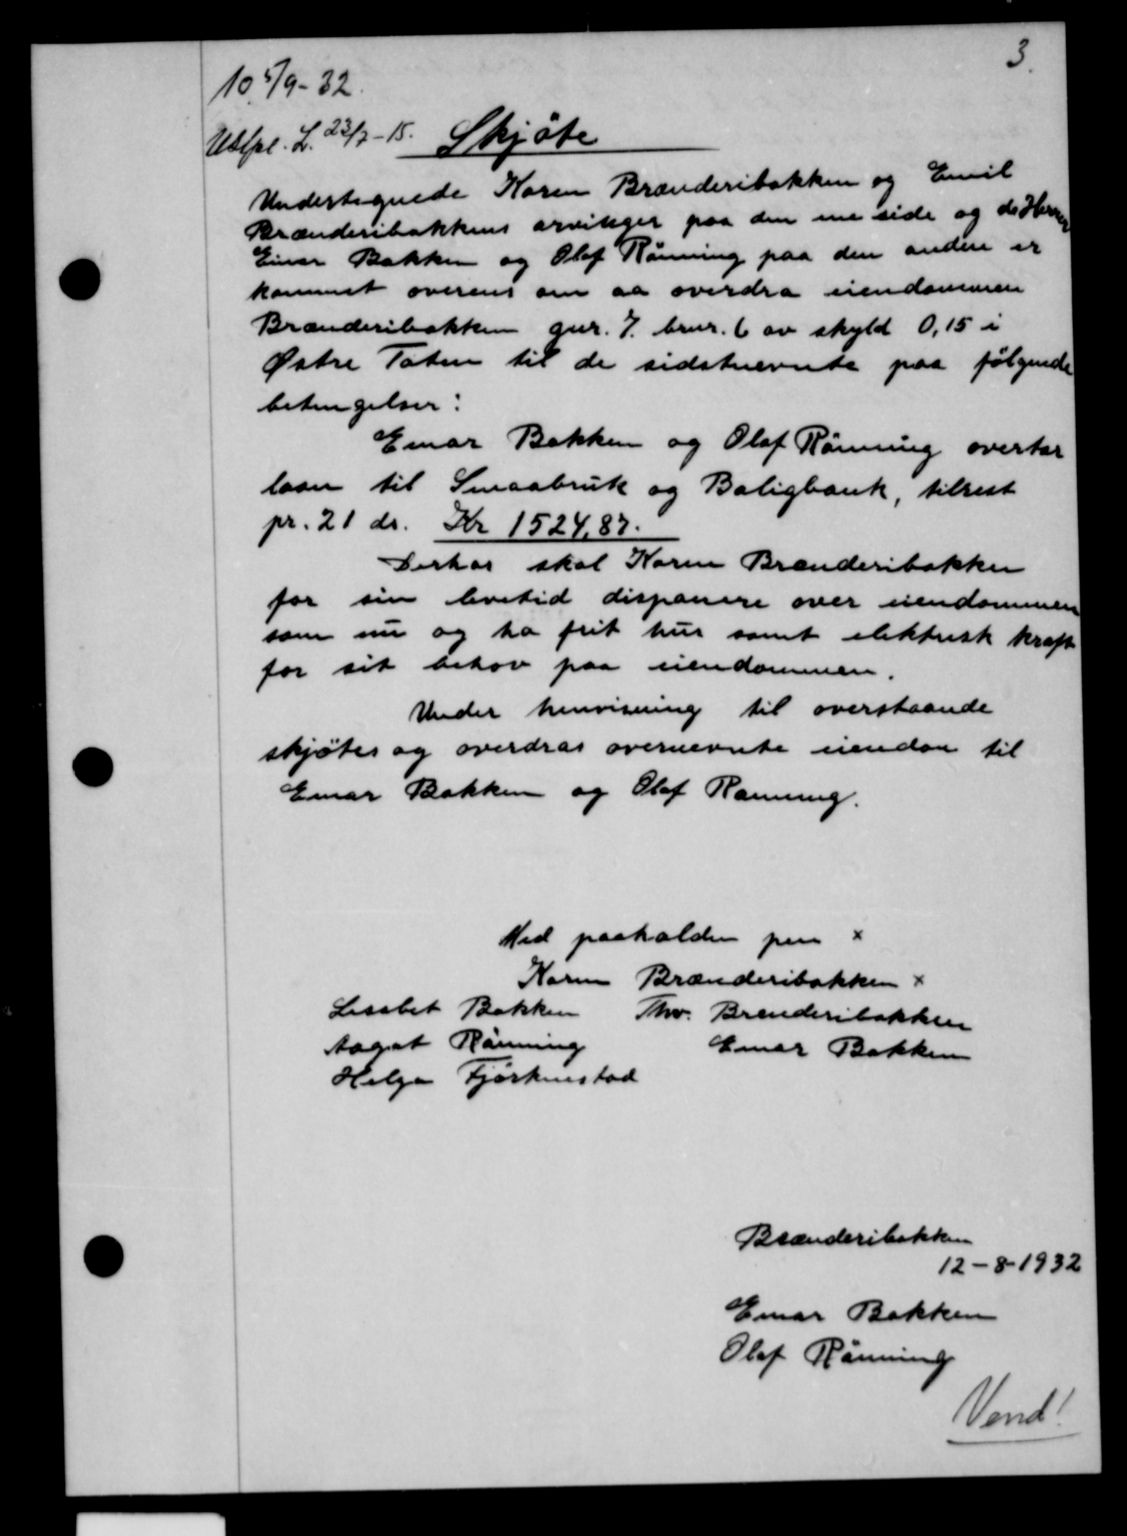 3.
10. 5/9-32.
Utfpl. L. 23/7-15. Skjöte
Undertegnede Karen Brænderibakken og Emil
Brænderibakkens arvinger paa den ene side og de Herrer
Einar Bakken og Olaf Rönning paa den anden er
kommet overens om aa overdra eiendommen
Brænderibakken gnr. 7. brnr. 6 av skyld 0,15 i
Østre Toten til de sidstnevnte paa følgende
betingelser:
Einar Bakken og Olaf Rönning overtar
laan til Smaabruk og Boligbank, tilrest
pr. 21 ds. Kr 1524,87.
Derhos skal Karen Brænderibakken
for sin levetid disponere over eiendommen
som nu og ha frit hus samt elektrisk kraft
for sit behov paa eiendommen.
Under henvisning til overstaande
skjøtes og overdras overnevnte eiendom til
Einar Bakken og Olaf Rønning.
Med paaholden pen x
Karen Brænderibakken x
Lisabet Bakken Thv. Brenderibakken
Aagot Rönning Einar Bakken
Helga Fjørkenstad
Brænderibakken
12-8-1932
Einar Bakken
Olaf Rönning
Vend!